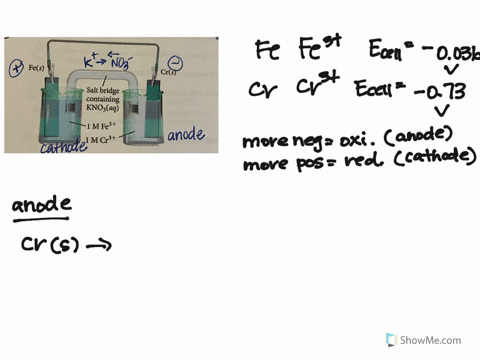 K⁺ → ← NO₃⁻
⊕ ⊖
Fe(s) Cr(s)
Salt bridge
containing
KNO₃(aq)
1 M Fe³⁺
1 M Cr³⁺
cathode
anode
Fe Fe³⁺ Ecell = -0.036 V
Cr Cr³⁺ Ecell = -0.73 V
more neg = oxi. (anode)
more pos = red. (cathode)
anode
Cr(s) →
ShowMe.com